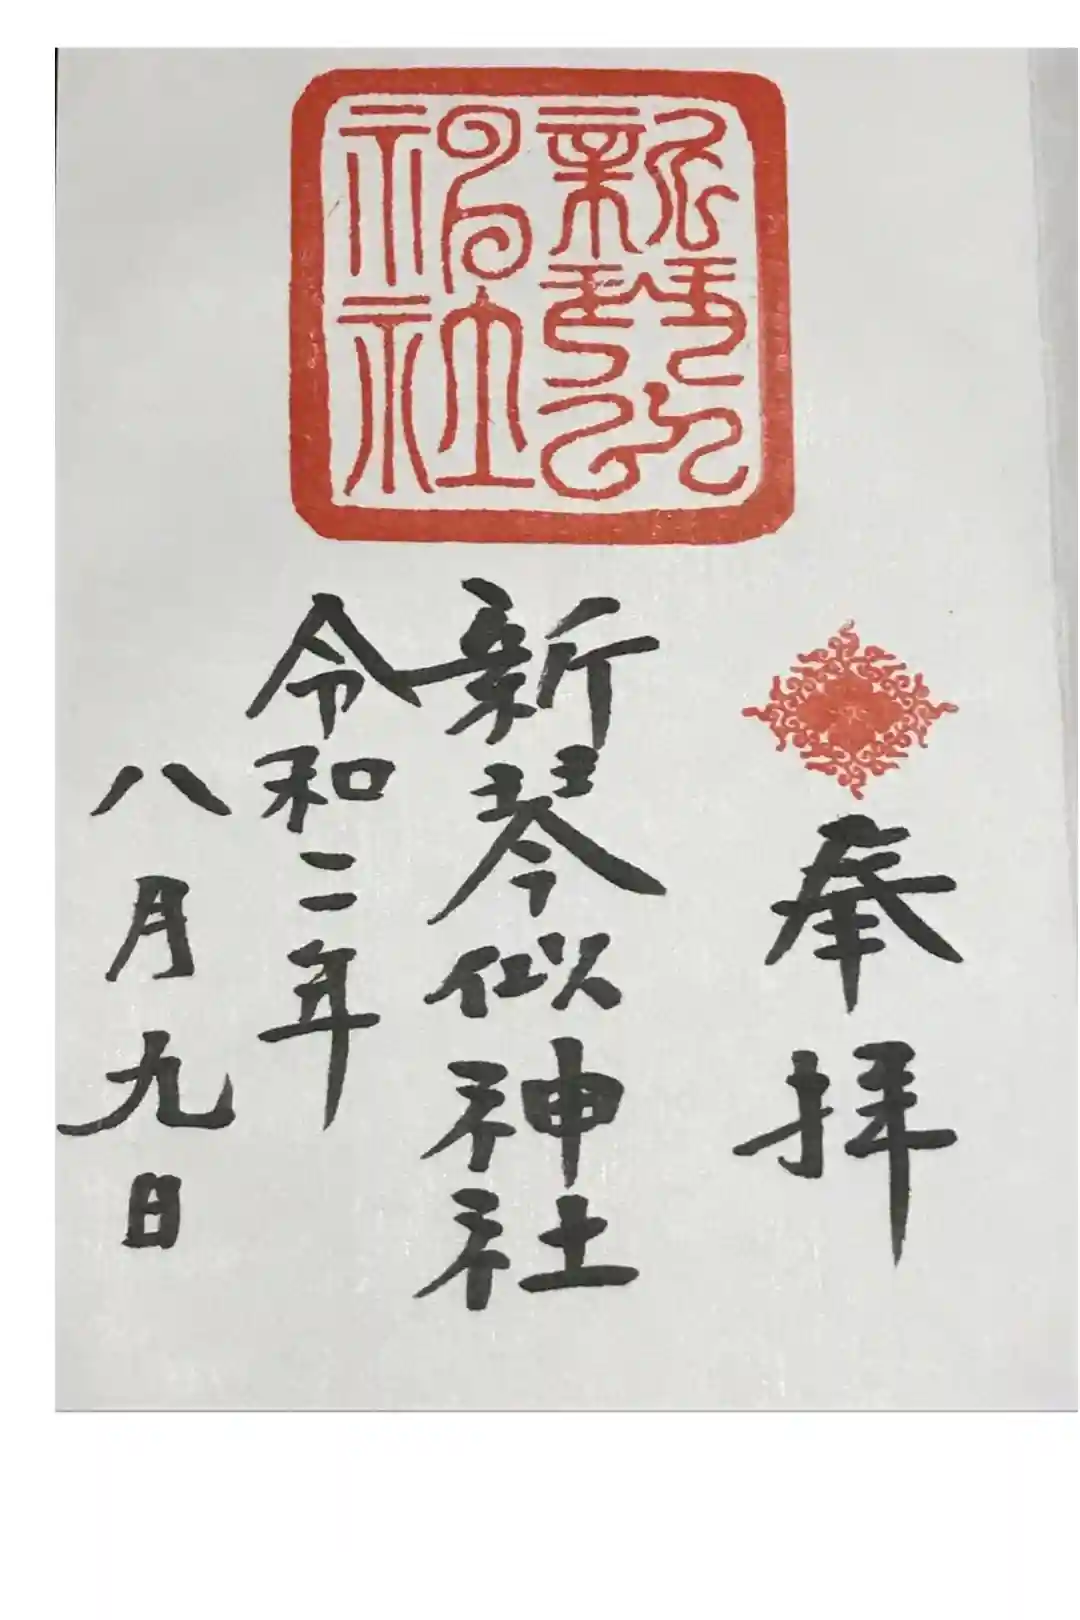 新琴似
神社
奉拝
新琴似神社
令和二年
八月九日